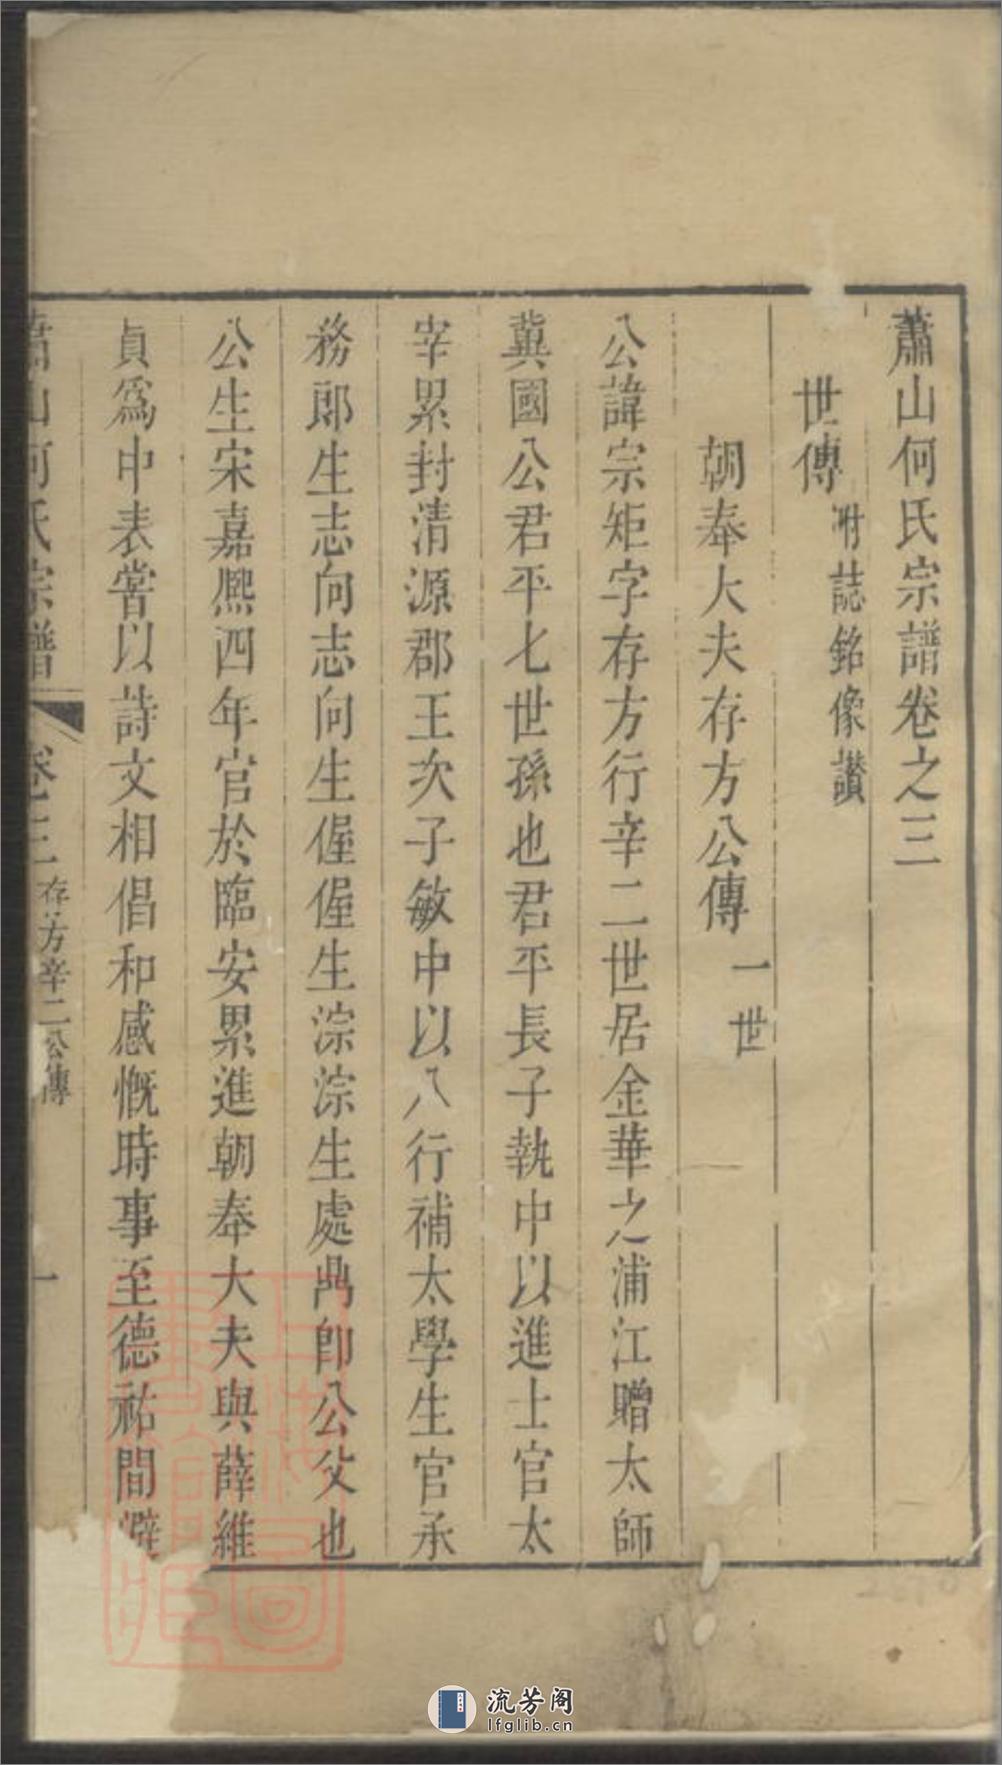 蕭山何氏宗譜卷之三
世傳 附誌銘像讃
朝奉大夫存方公傳 一世
公諱宗矩字存方行辛二世居金華之浦江贈太師
冀國公君平七世孫也君平長子執中以進士官太
宰累封清源郡王次子敏中以八行補太學生官承
務郎生志向志向生偓偓生淙淙生處卨卽公父也
公生宋嘉熙四年官於臨安累進朝奉大夫與薛維
貞爲中表嘗以詩文相倡和感慨時事至德祐間避
蕭山何氏宗譜 卷三 存方辛二公傳 一
流芳阁
lfglib.cn